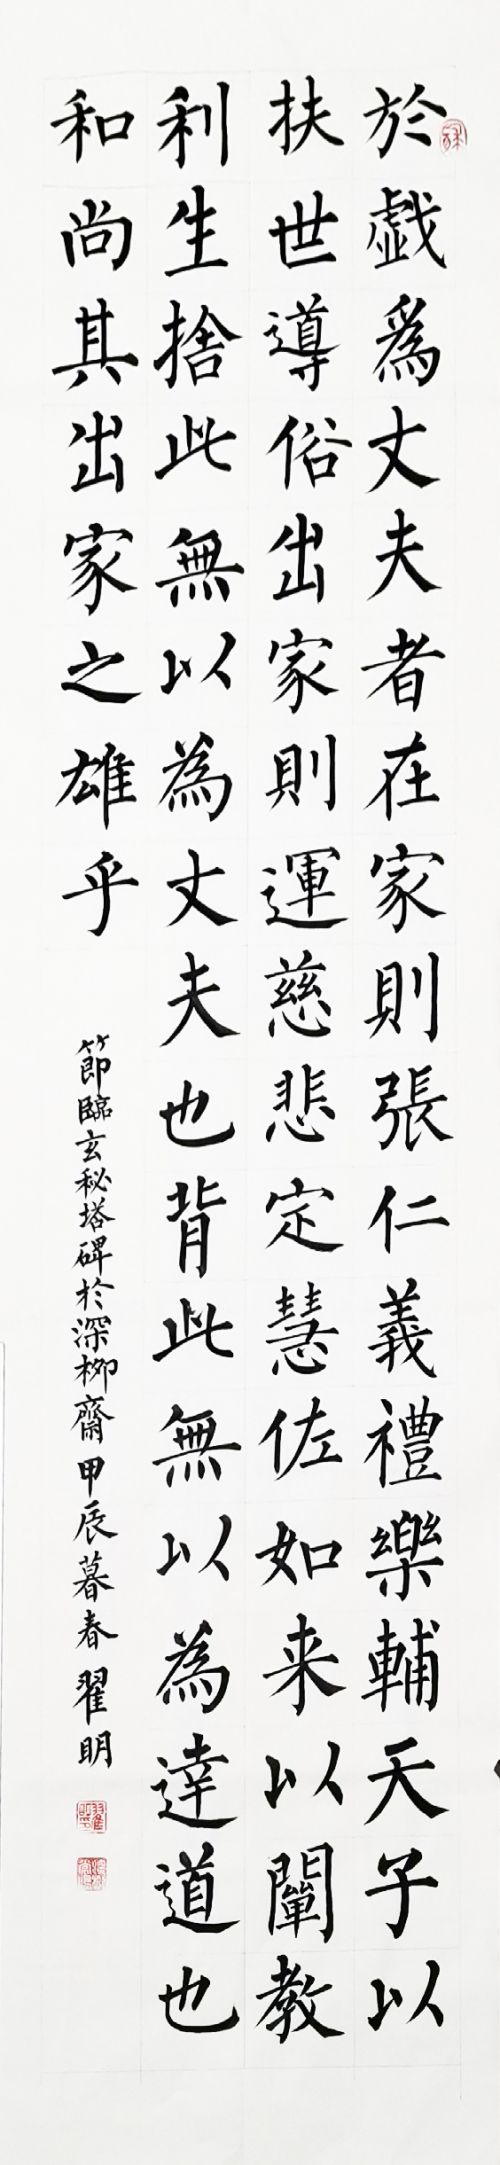 於戯爲丈夫者在家則張仁義禮樂輔天子以
扶世導俗出家則運慈悲定慧佐如来以闡教
利生捨此無以為丈夫也背此無以為達道也
和尚其出家之雄乎
節臨玄秘塔碑於深柳齋甲辰暮春翟明